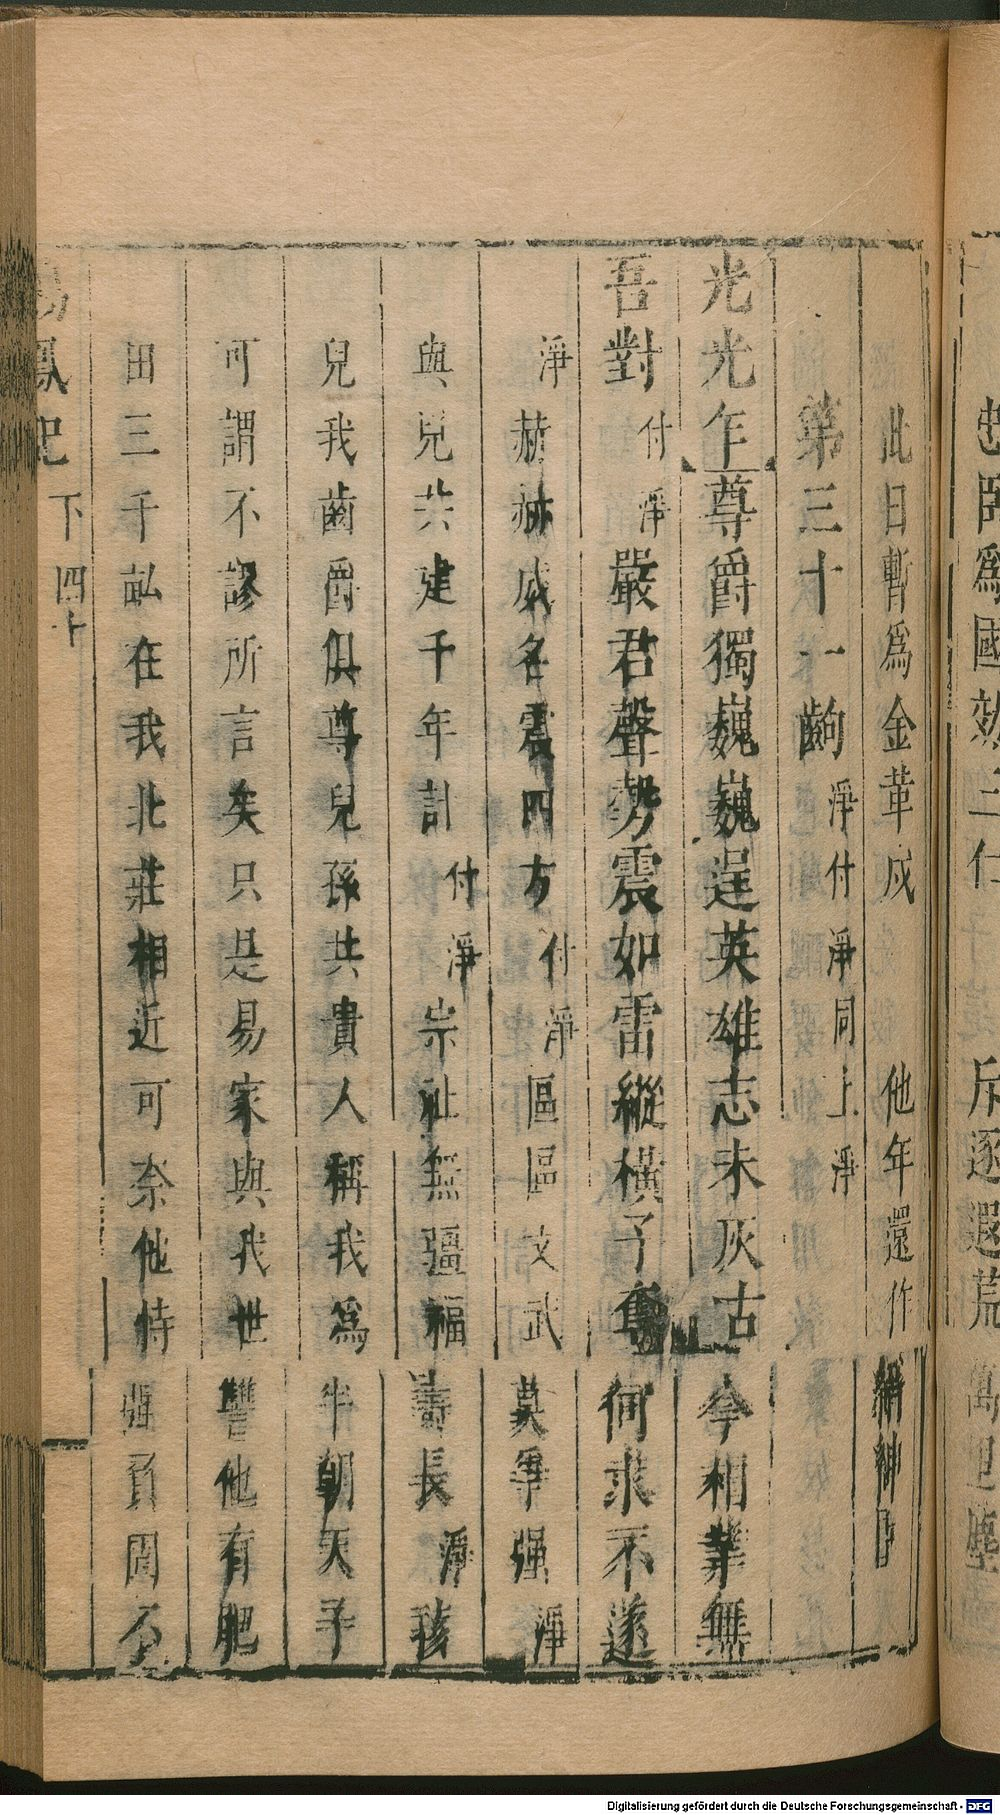 忠固爲國効三仕
斥逐遐荒萬里塵
此日暫爲金革戍
他年還作
第三十一齣
淨付淨同上淨
光光乍
尊爵獨巍巍逞英雄志未灰古今相業無
吾對
付淨
嚴君聲勢震如雷縱橫予奪何求不遂
淨
赫赫威名震四方
付淨
區區文武莫爭强
淨
與兒共建千年計
付淨
宗社無疆福壽長
淨
孩
兒我齒爵俱尊兒孫共貴人稱我爲半朝天子
可謂不謬所言矣只是易家與我世讐他有肥
田三千畝在我北莊相近可奈他恃强負固不
鳳記
下
四十
Digitalisierung gefördert durch die Deutsche Forschungsgemeinschaft - DFG